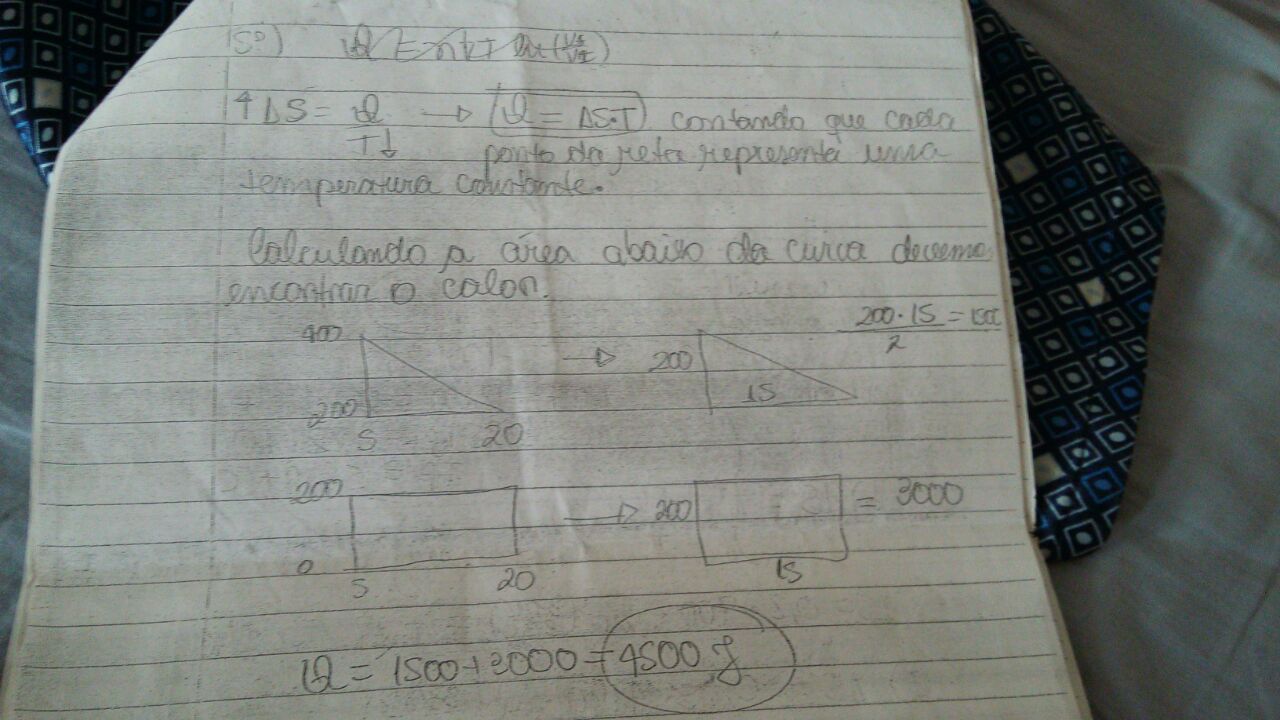 5º)
↑ΔS = Q/T↓ → Q = ΔS·T contando que cada
ponto da reta representa uma
temperatura constante.
Calculando a área abaixo da curva devemo
encontrar o calor.
400
200
5 20
200
15
200·15/2 = 1500
200
0
5 20
200
15
= 3000
Q = 1500+3000 = 4500 J